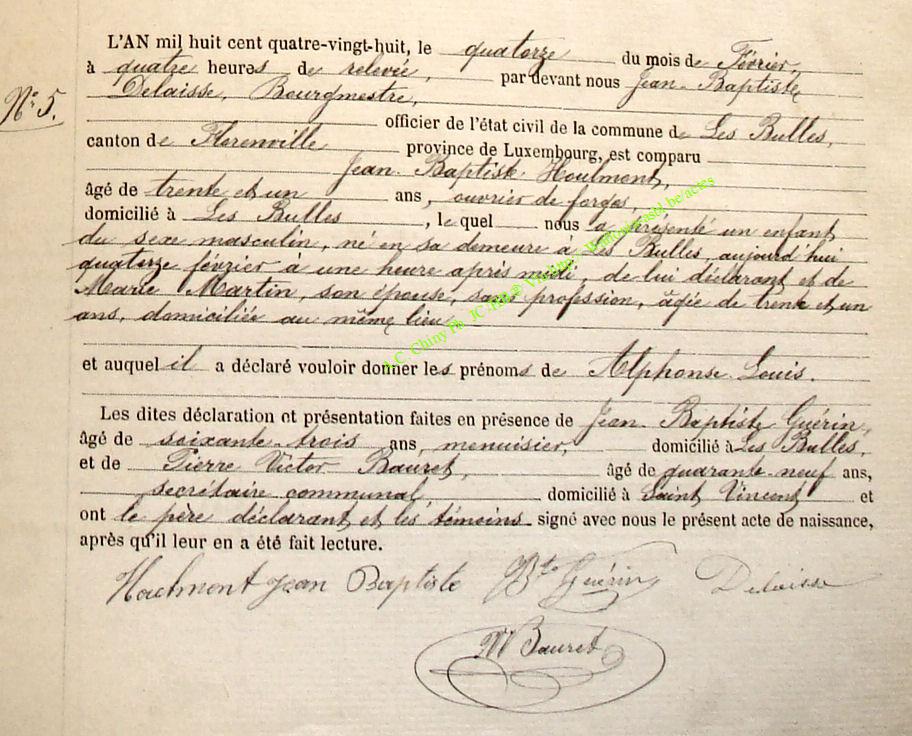 L'AN mil huit cent quatre-vingt-huit, le quatorze du mois de Février,
à quatre heures de relevée, par devant nous Jean-Baptiste
Delaisse, Bourgmestre,
N° 5.
officier de l'état civil de la commune de Les Bulles,
canton de Florenville province de Luxembourg, est comparu
Jean-Baptiste Houlmont,
âgé de trente et un ans, ouvrier de forges,
domicilié à Les Bulles, le quel nous a présenté un enfant
du sexe masculin, né en sa demeure à Les Bulles, aujourd'hui
quatorze février à une heure après midi, de lui déclarant et de
Marie Martin, son épouse, sans profession, âgée de trente et un
ans, domiciliée au même lieu
et auquel il a déclaré vouloir donner les prénoms de Alphonse Louis.
Les dites déclaration et présentation faites en présence de Jean-Baptiste Guérin,
âgé de soixante-trois ans, menuisier, domicilié à Les Bulles,
et de Pierre Victor Bauret, âgé de quarante-neuf ans,
secrétaire communal domicilié à Saint Vincent et
ont le père déclarant et les témoins signé avec nous le présent acte de naissance,
après qu'il leur en a été fait lecture.
Houlmont Jean Baptiste Bte Guérin Delaisse
Bauret
A.C. Chiny